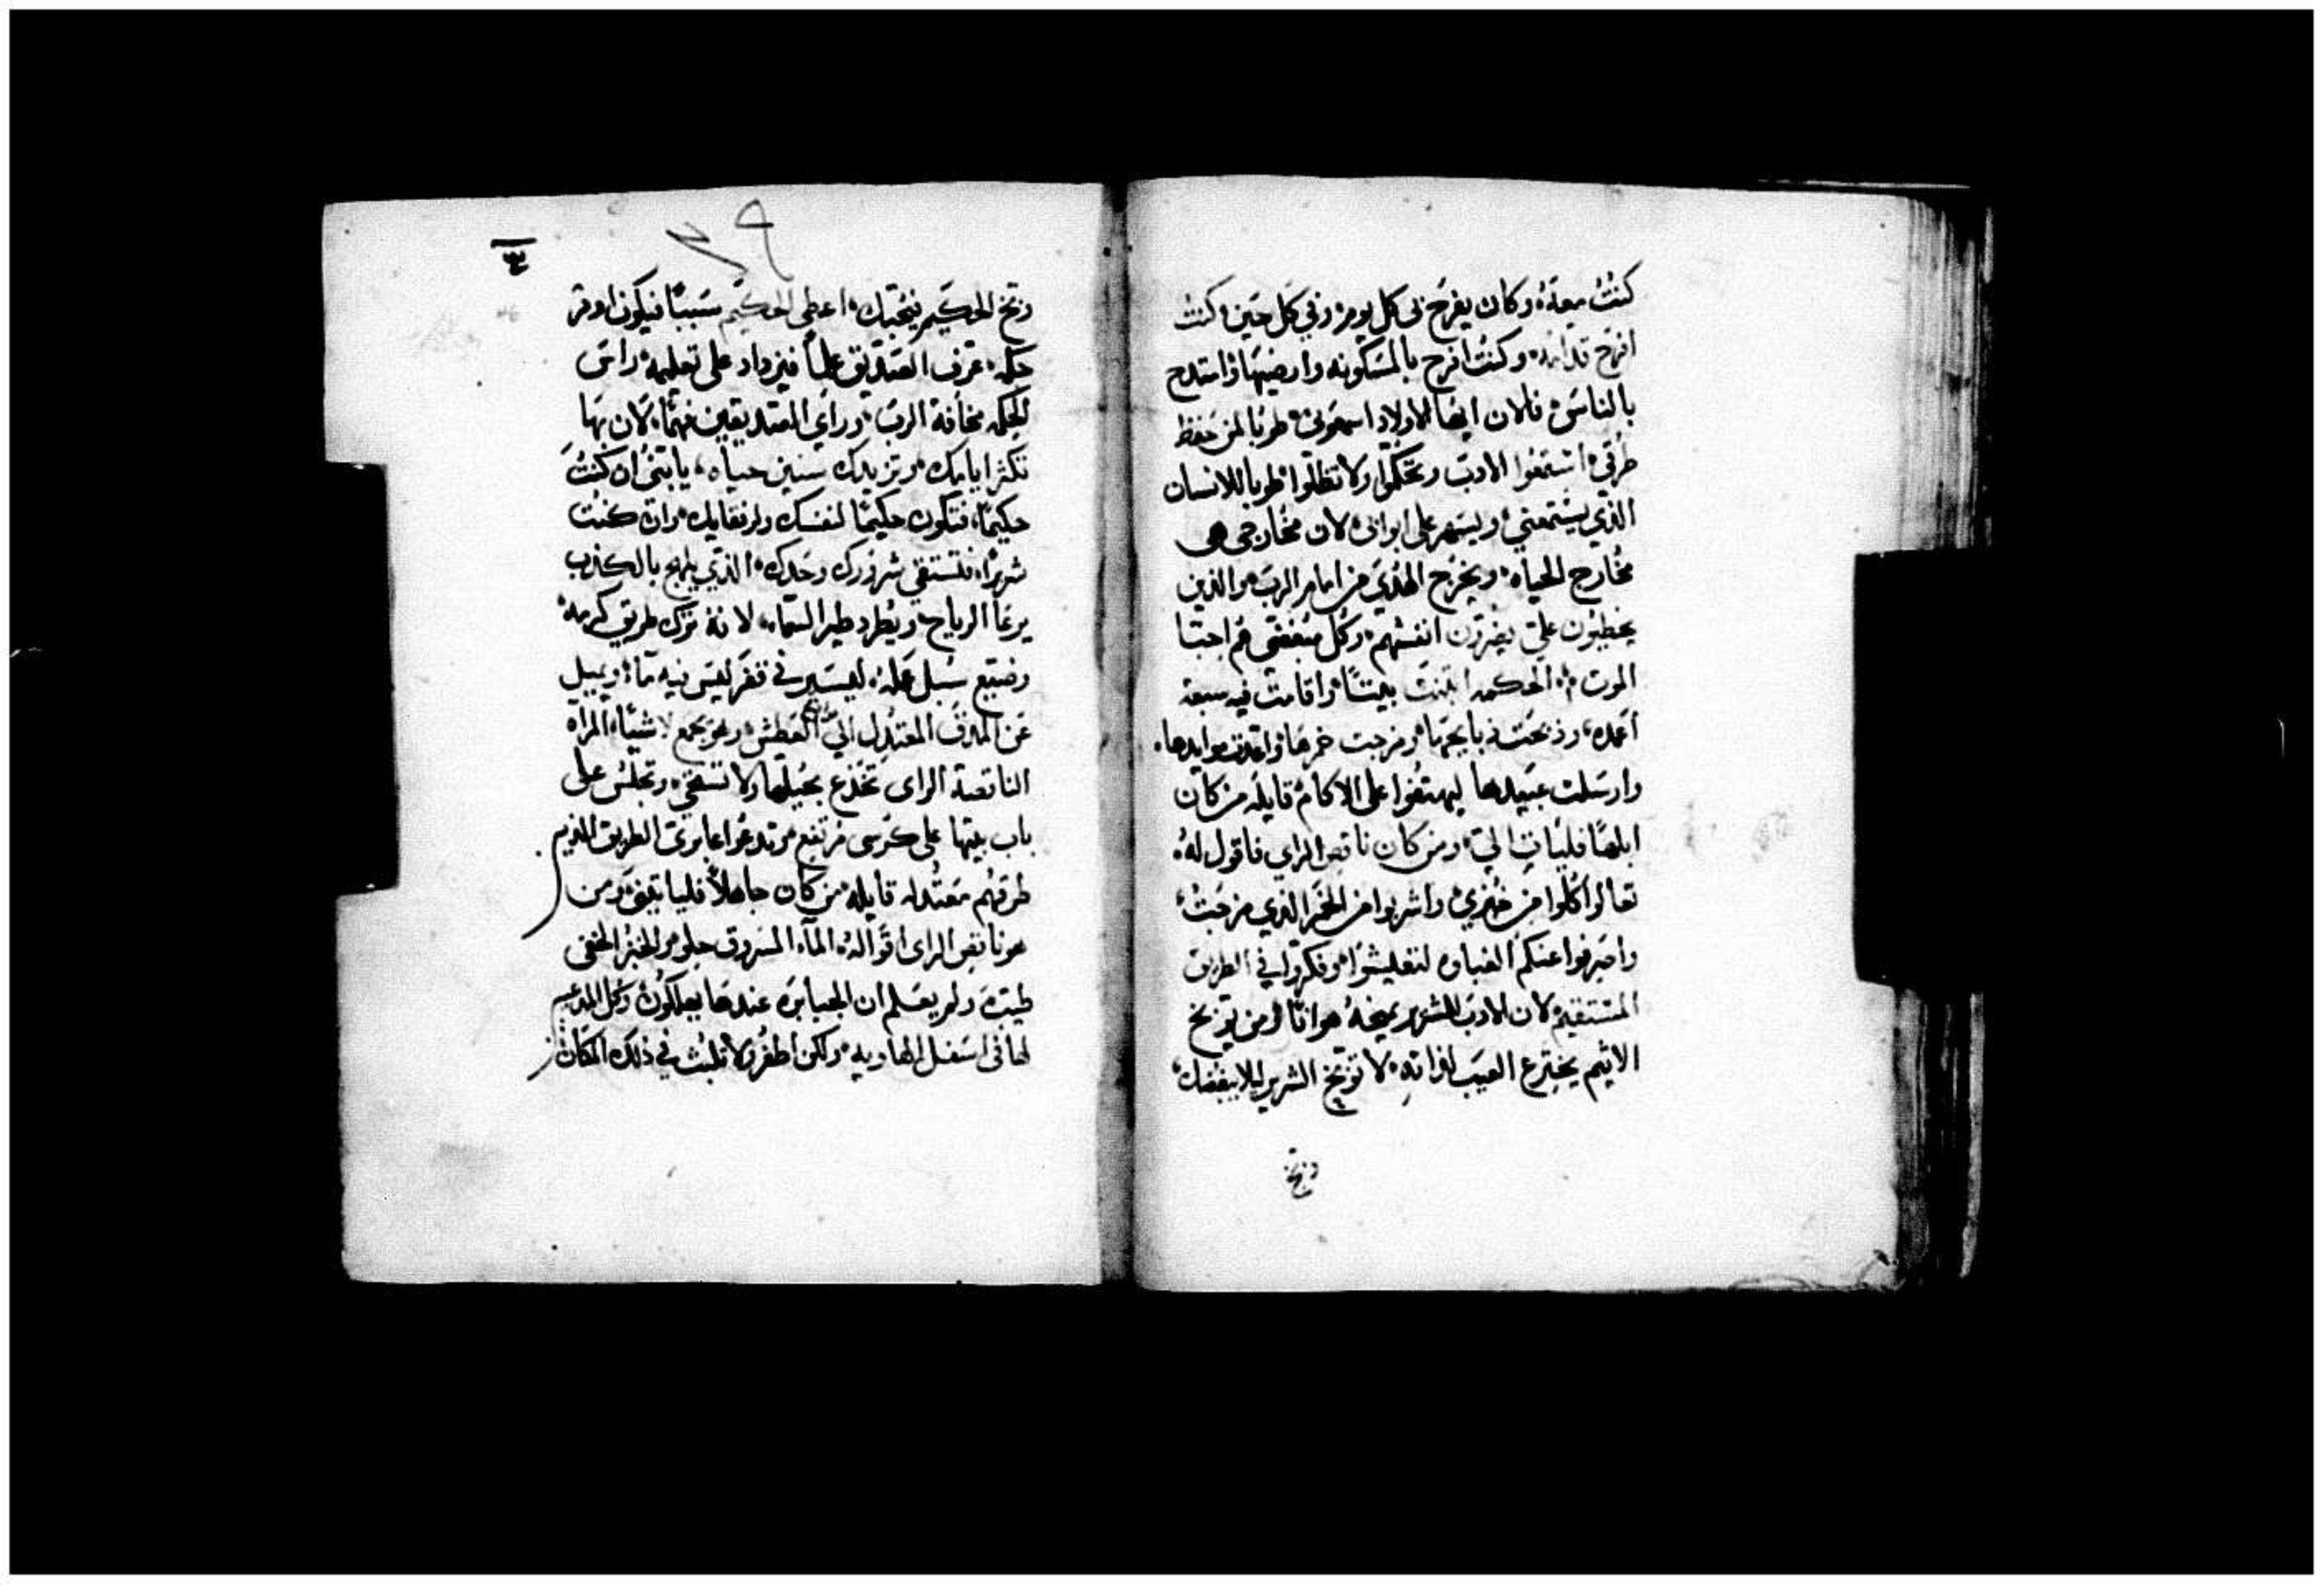 كنتُ معهُ، وكان يفرَح بى كل يوم، وفي كل حَين، كنت
افرَح قدامه، وكنتُ افرح بالمسَكونه وارضيهَا، وامتدح
بالناسَ، فالان ايهَا الاولاد اسمعَونى، طوبَا لمن حَفظ
طرقي، استمعُوا الادبَ وتحَكمُوا ولا تظلّوا، طوبا للانسان
الذي يستمعنى، وليسَهر على ابوابى، لان مخَارجى هى
مخَارج الحياه، ويخرُج الهُدَى من امام الربَ، والذين
يخطيُون علىّ يضرون انفسَهم، وكل مبغضّى هم احبَا
الموت، الحكمه ابتنت بيتًا، واقامت فيه سبعة
اعَمده، وذبحَت ذبايحهَا، ومزجت خمرهَا، واعَدت موايدها،
وارسَلت عبَيدها ليهتفُوا على الاكام، قايله من كان
ابلهًا فليَاتِ اليّ، ومن كان ناقص الراي فاقول لهُ
تعَالوا كُلوا من خُبزي، واشربوا من الخمَر الذي مزجَتُ،
واصَرفوا عنكم الغباوه لتعَيشوا، وفكرّوا في الطريق
المستقيم، لان الادبَ للشرير يمنحهُ هوانًا، ومن يوبّخ
الاثيم يخترع العيَب لذاتهِ، لا توبّخ الشرير ليلا يبغضك،
وبّخ
٣٩
وبّخ الحكَيم فيحُبَك، اعطى الحكيَم سَببًا فيكون اوفر
حكمه، عرف الصَدّيق علمًا فيزداد على تعليمه، راسَ
الحكمه مخَافة الربَ، وراَي الصَديقين فهمًا، لان بهَا
تكثر ايامك، وتزيدك سنين حياه، يا ابنى ان كُنتَ
حكيمًا، فتكون حكيمًا لنفسَك ولرفقايك، وان كنت
شريرًا، فتستقى شرورك وحَدك، الذي يلهج بالكذب
يرعَا الرياح، ويُطرد طير السَماء، لانهُ ترك طريق كرمه،
وضيّع سُبل عمَله، ليسَير في قفر ليسَ فيه مَاء، ويميل
عَن المعتدِل الىّ العَطش، وهو يجمع لا شيًا، المراه
الناقصة الراى تخَدع بحُيلها ولا تستحَى، وتجلسُ على
باب بيتها على كرُسى مرتفع، وتدعُوا عابرىَ الطريق
طرقهُم معَتدله قايله، من كان جاهلاً فليا تينى، ومن
هو ناقص الراى اقوَالهُ المآء المسَروق حلو، والخبزُ الخفى
طيبَ، ولم يعَلم ان الجبابرة عندهَا يهلكُون، وكل
لها فى اسَفل الهاويه، ولكن اطفُر ولا تلبَث في ذلك المكان